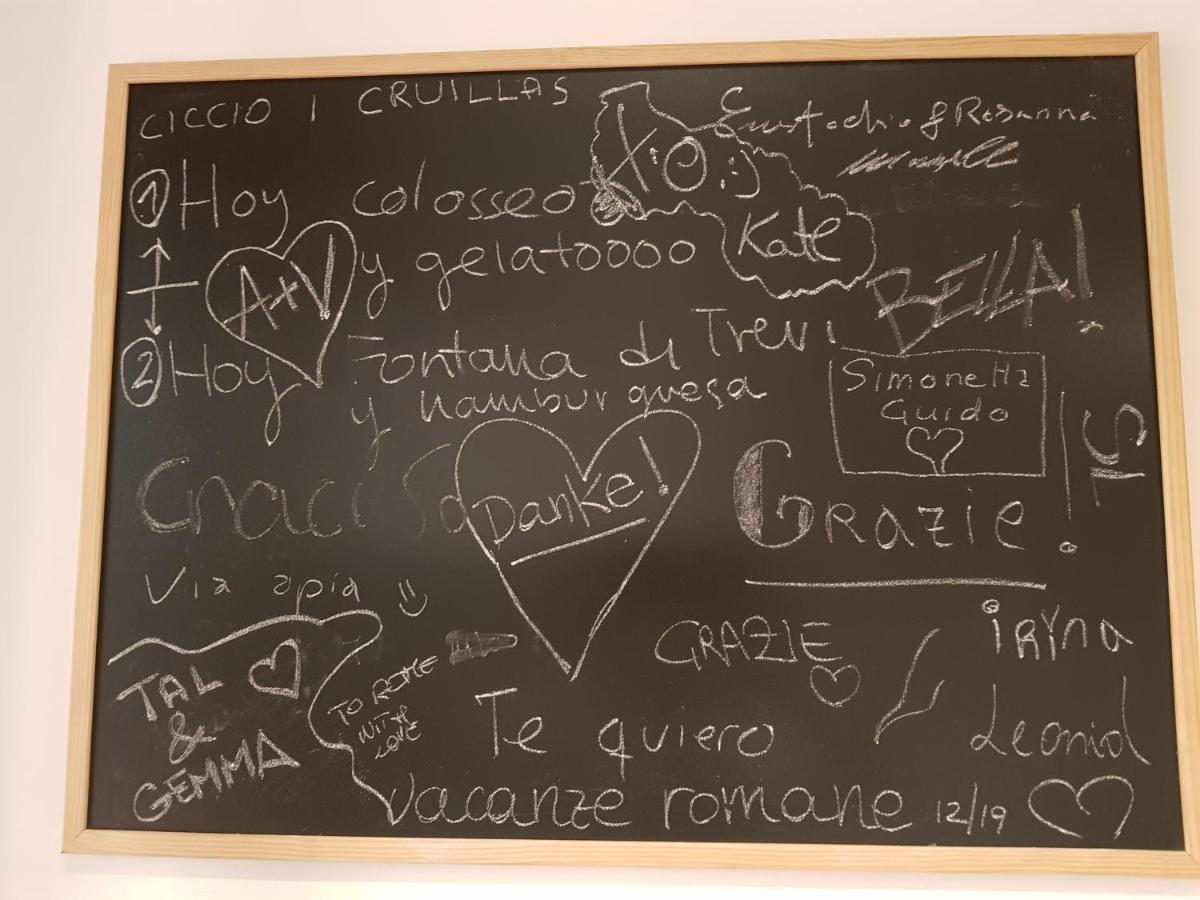 CICCIO I CRUILLAS
& Rosanna
1 Hoy colosseo
y gelatoooo
Kate
A+V
BELLA!
2 Hoy Fontana di Trevi
y hamburguesa
Simonetta
Guido
TS
Danke!
GRAZIE!
Via apia
TAL
&
GEMMA
TO ROME
WITH
LOVE
GRAZIE
iRYna
Leonid
Te quiero
vacanze romane 12/19